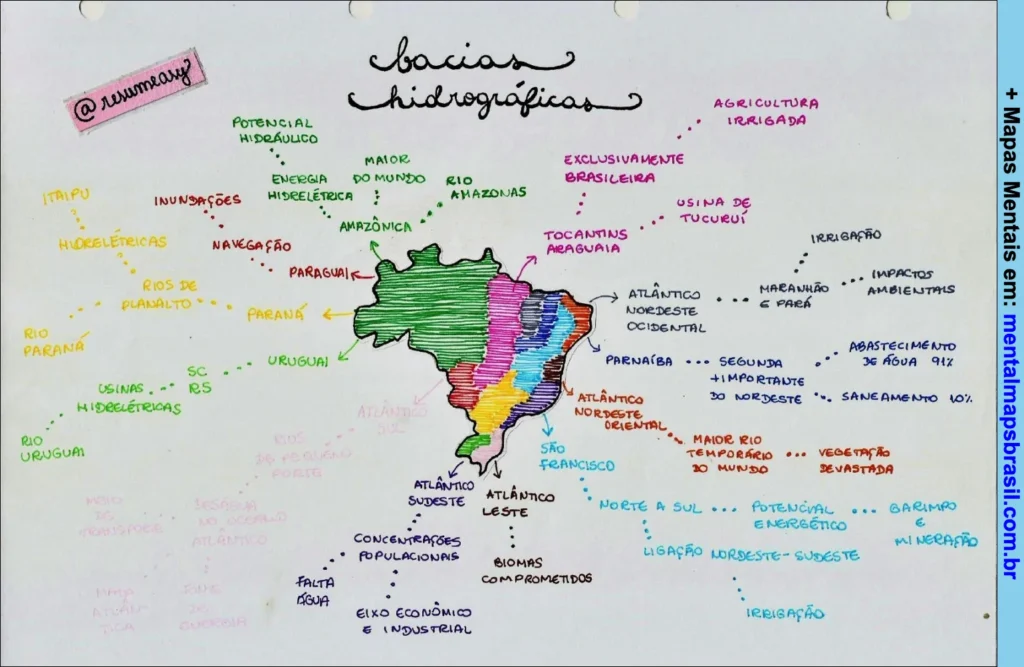 bacias
hidrográficas
@resumeasy
+ Mapas Mentais em: mentalmapsbrasil.com.br
POTENCIAL
HIDRÁULICO
ENERGIA
HIDRELÉTRICA
MAIOR
DO MUNDO
RIO
AMAZONAS
AMAZÔNICA
INUNDAÇÕES
NAVEGAÇÃO
PARAGUAI
ITAIPU
HIDRELÉTRICAS
RIOS DE
PLANALTO
RIO
PARANÁ
PARANÁ
URUGUAI
SC
RS
USINAS
HIDRELÉTRICAS
RIO
URUGUAI
ATLÂNTICO
SUL
RIOS
DE PEQUENO
PORTE
MEIO
DE
TRANSPORTE
DESÁGUA
NO OCEANO
ATLÂNTICO
MATA
ATLÂN
TICA
FONTE
DE
ENERGIA
AGRICULTURA
IRRIGADA
EXCLUSIVAMENTE
BRASILEIRA
USINA DE
TUCURUÍ
TOCANTINS
ARAGUAIA
ATLÂNTICO
NORDESTE
OCIDENTAL
MARANHÃO
E PARÁ
IRRIGAÇÃO
IMPACTOS
AMBIENTAIS
PARNAÍBA
SEGUNDA
+IMPORTANTE
DO NORDESTE
ABASTECIMENTO
DE ÁGUA 91%
SANEAMENTO 10%
ATLÂNTICO
NORDESTE
ORIENTAL
MAIOR RIO
TEMPORÁRIO
DO MUNDO
VEGETAÇÃO
DEVASTADA
SÃO
FRANCISCO
NORTE A SUL
POTENCIAL
ENERGÉTICO
GARIMPO
E
MINERAÇÃO
LIGAÇÃO NORDESTE-SUDESTE
IRRIGAÇÃO
ATLÂNTICO
SUDESTE
CONCENTRAÇÕES
POPULACIONAIS
FALTA
ÁGUA
EIXO ECONÔMICO
E INDUSTRIAL
ATLÂNTICO
LESTE
BIOMAS
COMPROMETIDOS